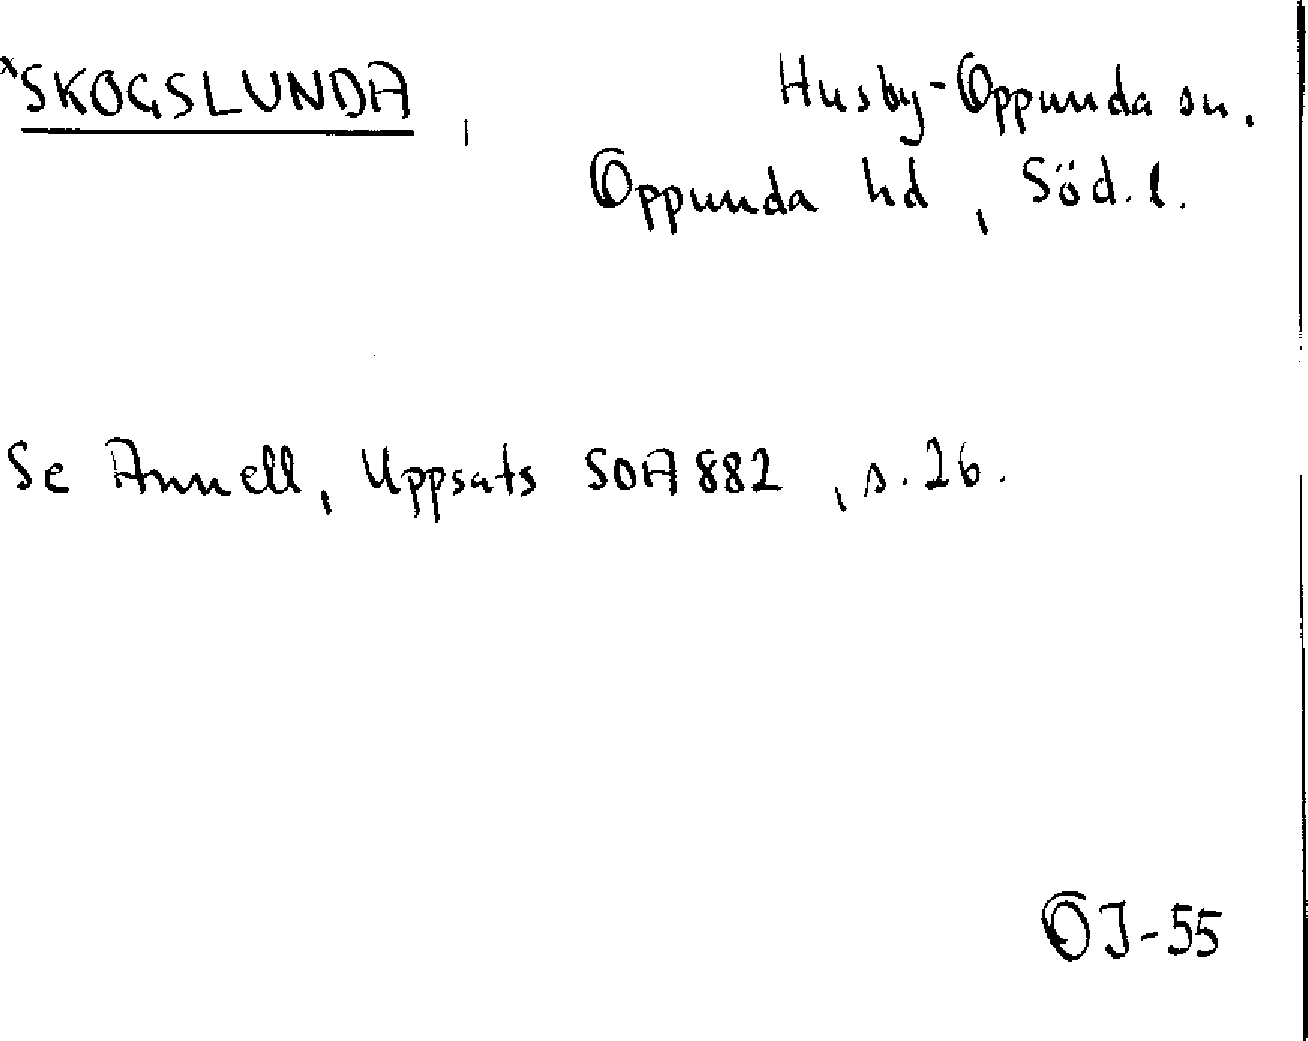 xSKOGSLUNDA, Husby-Oppunda sn.
Oppunda hd, Söd. l.
Se Annell, Uppsats SOA 882, s. 26.
OJ-55